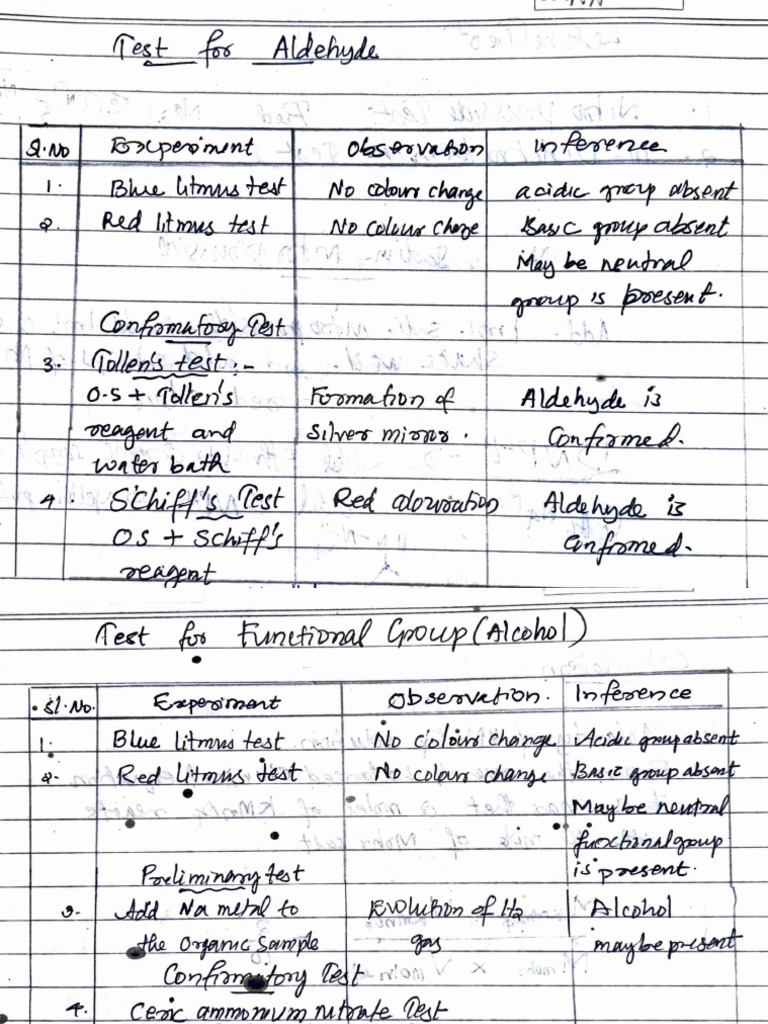 Test for Aldehyde
Sl.No Experiment Observation Inference
1. Blue litmus test No colour change acidic group absent
2. Red litmus test No colour change Basic group absent
May be neutral
group is present.
Confirmatory Test
3. Tollen's test :-
O.S + Tollen's Formation of Aldehyde is
reagent and silver mirror. Confirmed.
water bath
4. Schiff's Test Red colouration Aldehyde is
OS + Schiff's confirmed.
reagent
Test for Functional Group (Alcohol)
Sl.No. Experiment Observation. Inference
1. Blue litmus test No colour change Acidic group absent
2. Red litmus test No colour change Basic group absent
May be neutral
functional group
is present.
Preliminary test
3. Add Na metal to Evolution of H2 Alcohol
the Organic Sample gas may be present
Confirmatory Test
4. Ceric ammonium nitrate Test